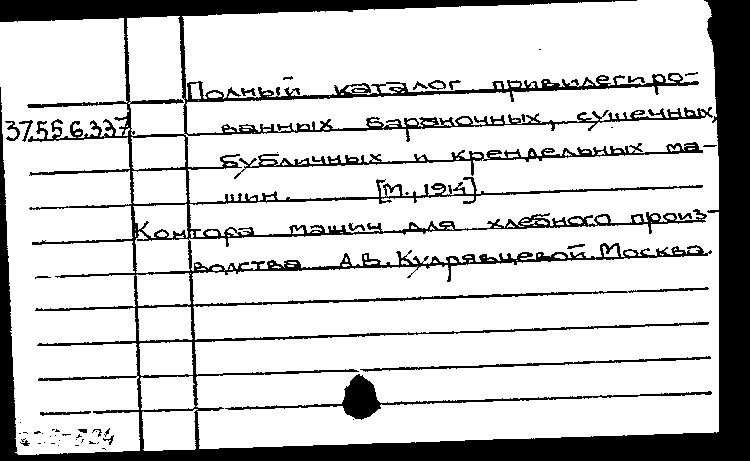 Полный каталог привилегиро-
37.55.6.337. ванных бараночных, сушечных,
бубличных и крендельных ма-
шин. [М., 1914].
Контора машин для хлебного произ-
водства А.В. Кудрявцевой. Москва.